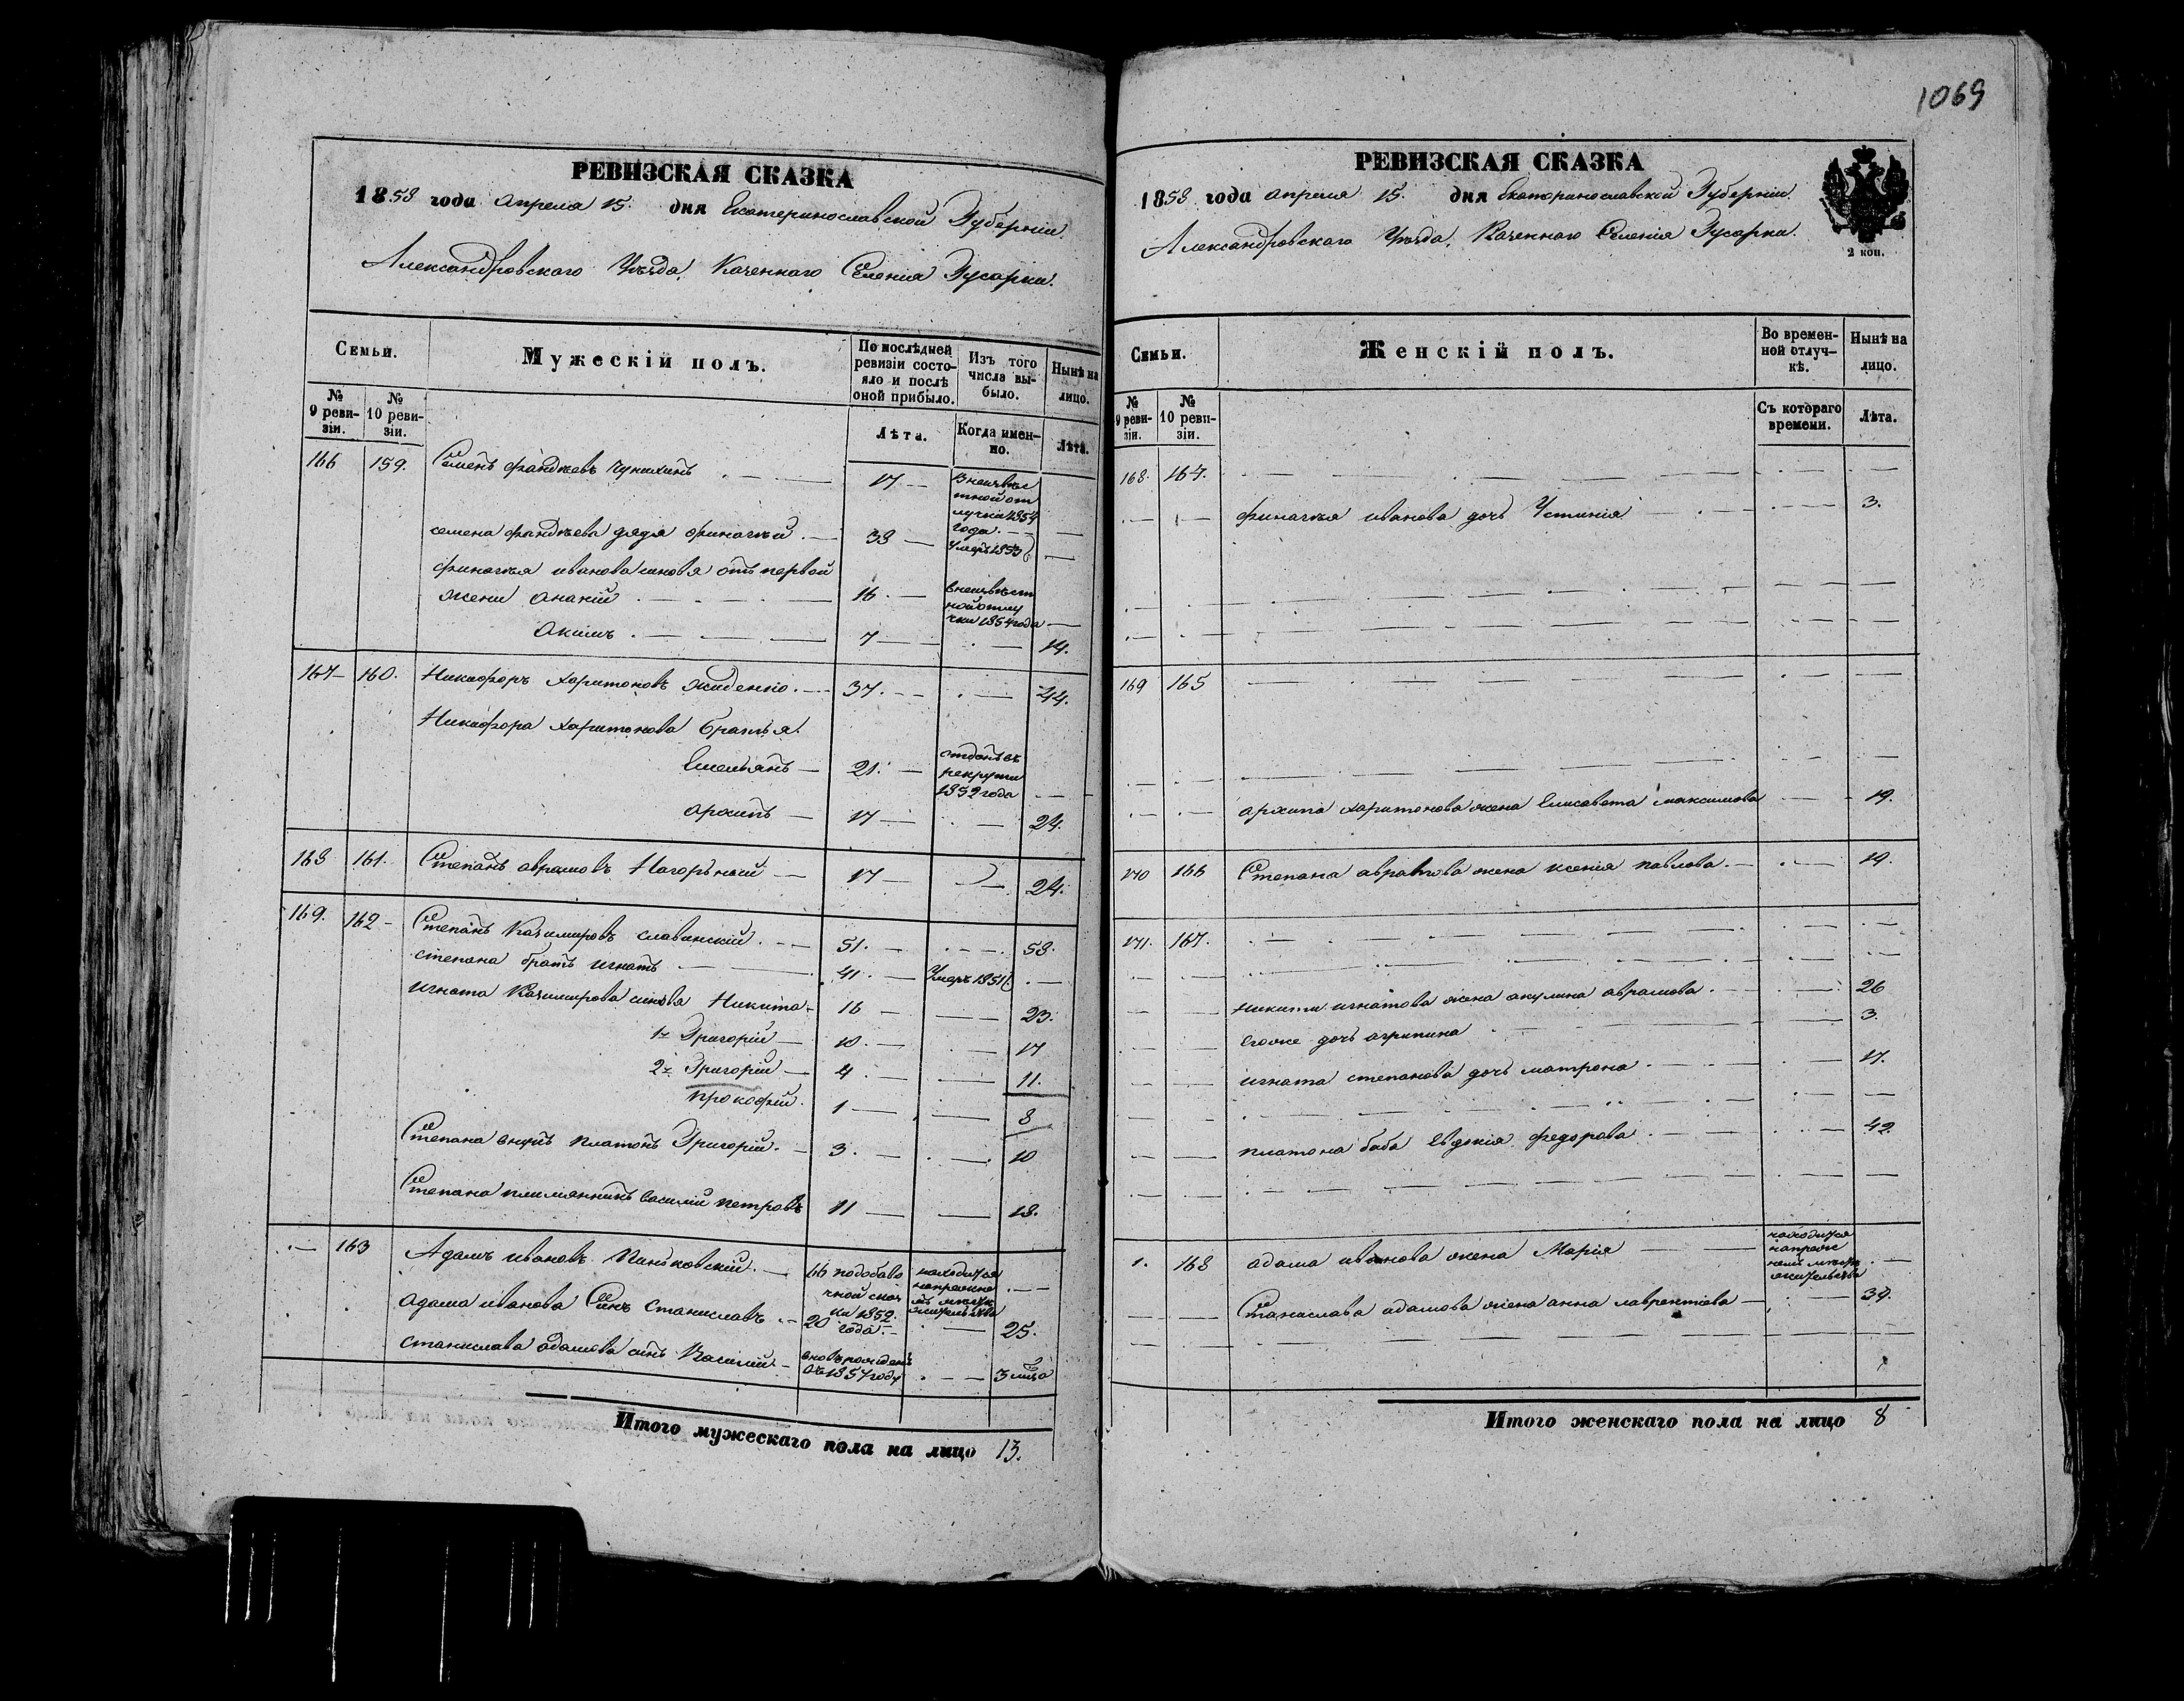 1069
РЕВИЗСКАЯ СКАЗКА
1858 года апреля 15. дня Екатеринославской Губерніи.
Александровского Уезда, Казеннаго Селенія Гусарки.
Семьи.
Мужескій полъ.
По послѣдней ревизіи состояло и послѣ оной прибыло.
Изъ того числа выбыло.
Нынѣ на лицо.
№ 9 ревизіи.
№ 10 ревизіи.
Лѣта.
Когда именно.
Лѣта.
166 159. Семенъ 17
в неизвестной отлучки 1854 года.
семена дядя 38 умеръ 1853
иванова синовя отъ первой
жени Ананій 16. в неизвестной отлучки 1854 года
Акимъ 7 14.
167 160. Никифоръ Харитоновъ Жиденко. 37. 44.
Никифора Харитонова братья
Емельянъ 21. отданъ въ рекруты 1852 года
Архипъ 17 24.
168 161. Степанъ аврамовъ Нагоръный 17 24.
169. 162 Степанъ Казимировъ славинскій. 51. 58.
степана братъ игнатъ 41. Умеръ 1851
игната Казимирова синовя Никита 16 23.
1й Григорій 10. 17
2й Григорій 4 11.
прокофій. 1 8
Степана внукъ платонъ Григорій. 3. 10
Степана племянникъ василій петровъ 11 18.
163 Адамъ ивановъ 66 по добавочной сказки 1852 года находится на прежнемъ месте жительства
адама иванова Синъ станиславъ 20 25.
станислава адамова синъ Василій вновь рожденъ въ 1857 году 3 мца
Итого мужескаго пола на лицо 13.
РЕВИЗСКАЯ СКАЗКА
1858 года апреля 15. дня Екатеринославской Губерніи.
Александровского Уезда, Казенного Селенія Гусарки.
2 коп.
Семьи.
Женскій полъ.
Во временной отлучкѣ.
Нынѣ на лицо.
№ 9 ревизіи.
№ 10 ревизіи.
Съ котораго времени.
Лѣта.
168. 164.
иванова дочь Устинія 3.
169 165
архипа харитонова жена Елисавета максимова 19.
170 166 Степана аврамова жена ксенія павлова. 19.
171. 167.
никити игнатова жена акулина аврамова. 26
егоже дочь агрипина 3.
игната степанова дочь матрона 17.
платона баба Евдокія федорова 42.
1. 168 адама иванова жена Марія находится на прежнемъ месте жительства
Станислава адамова жена анна лаврентіева 34.
Итого женскаго пола на лицо 8